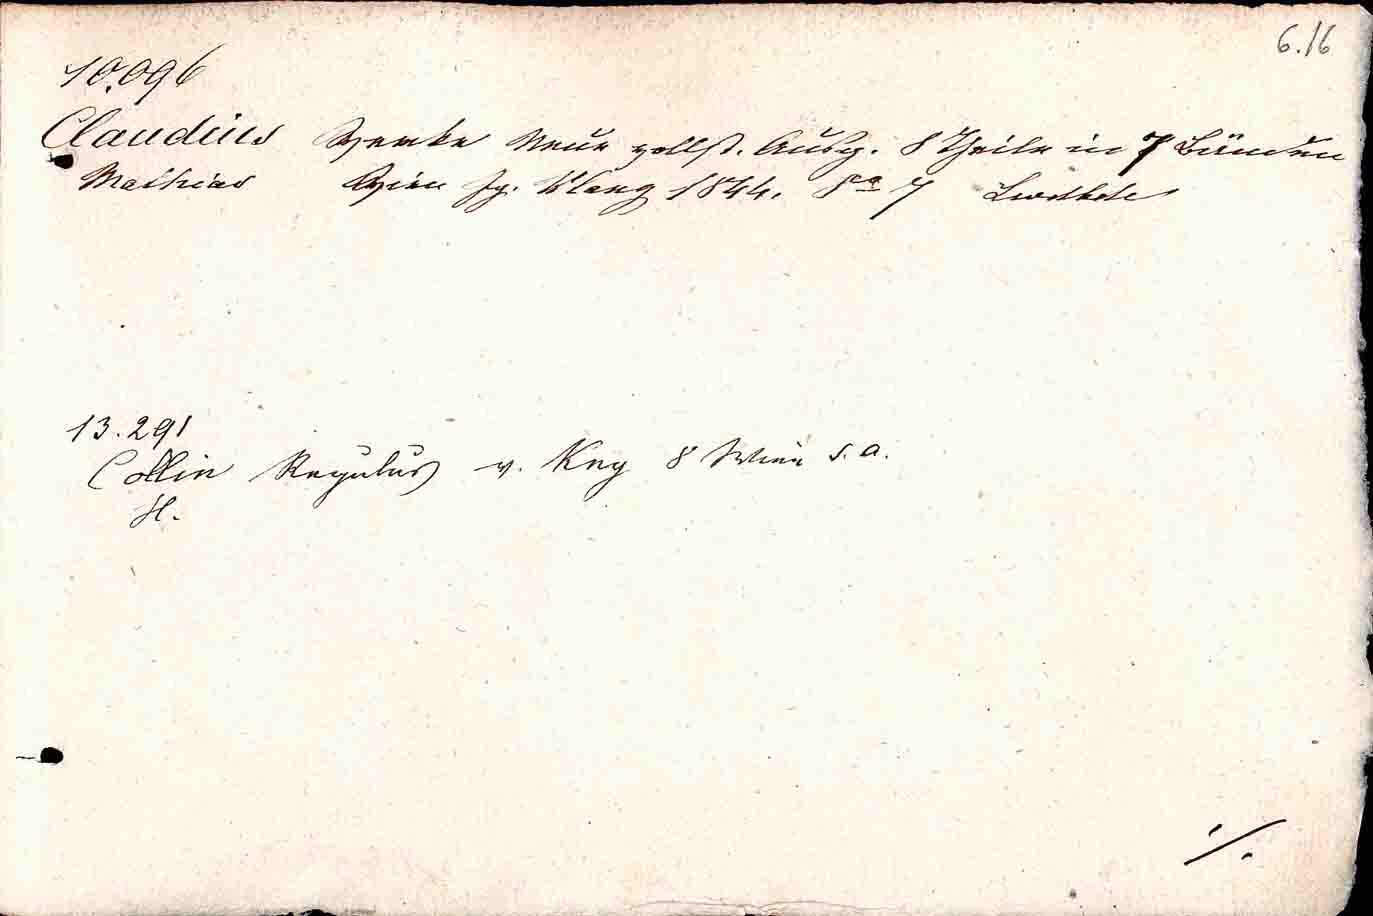 6.16
10.096
Claudius Werke Neue vollst. Ausg. 8 Theile in 7 Bänden
Mathias Wien Ig. Klang 1844. 8º 7
13.291
Collin Regulus v. Kny 8 Wien s.a.
H.
./.